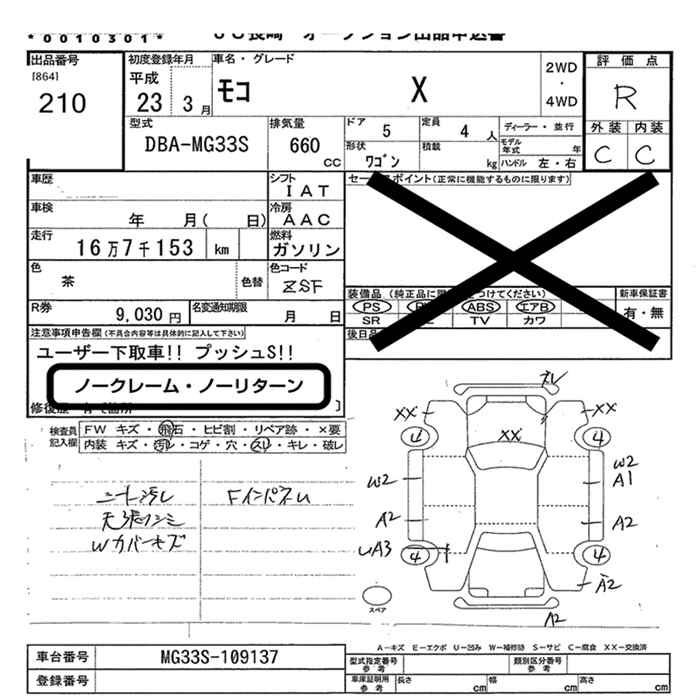 *0010301*
JU長崎 オークション出品申込書
出品番号
[864]
210
初度登録年月
平成
23 3 月
車名・グレード
モコ X
2WD
・
4WD
評価点
R
外装 内装
C C
型式
DBA-MG33S
排気量
660
cc
ドア 5 定員 4 人
形状 ワゴン 積載 kg
ディーラー・並行
モデル年式 年
ハンドル 左・右
車歴
シフト
IAT
車検
年 月( 日)
冷房
AAC
走行
16万7千153 km
燃料
ガソリン
色
茶
色替
色コード
ZSF
R券
9,030円
名変通知期限
月 日
セールスポイント(正常に機能するものに限ります)
装備品
PS ABS エアB
SR TV カワ
新車保証書
有・無
後日品
注意事項申告欄(不具合内容等は具体的に記入して下さい)
ユーザー下取車!! プッシュS!!
ノークレーム・ノーリターン
修復歴
検査員記入欄
FW キズ・飛石・ヒビ割・リペア跡・×要
内装 キズ・汚レ・コゲ・穴・スレ・キレ・破レ
シート汚レ
天張シミ
Wカバーキズ
XX XX
XX
4 4
W2 W2
A1
A2 A2
UA3
4 4
A2
A2
スペア
A−キズ E−エクボ U−凹み W−補修跡 S−サビ C−腐食 XX−交換済
車台番号
MG33S-109137
登録番号
型式指定番号
参考
類別区分番号
参考
車庫証明用
参考
長さ cm
幅 cm
高さ cm